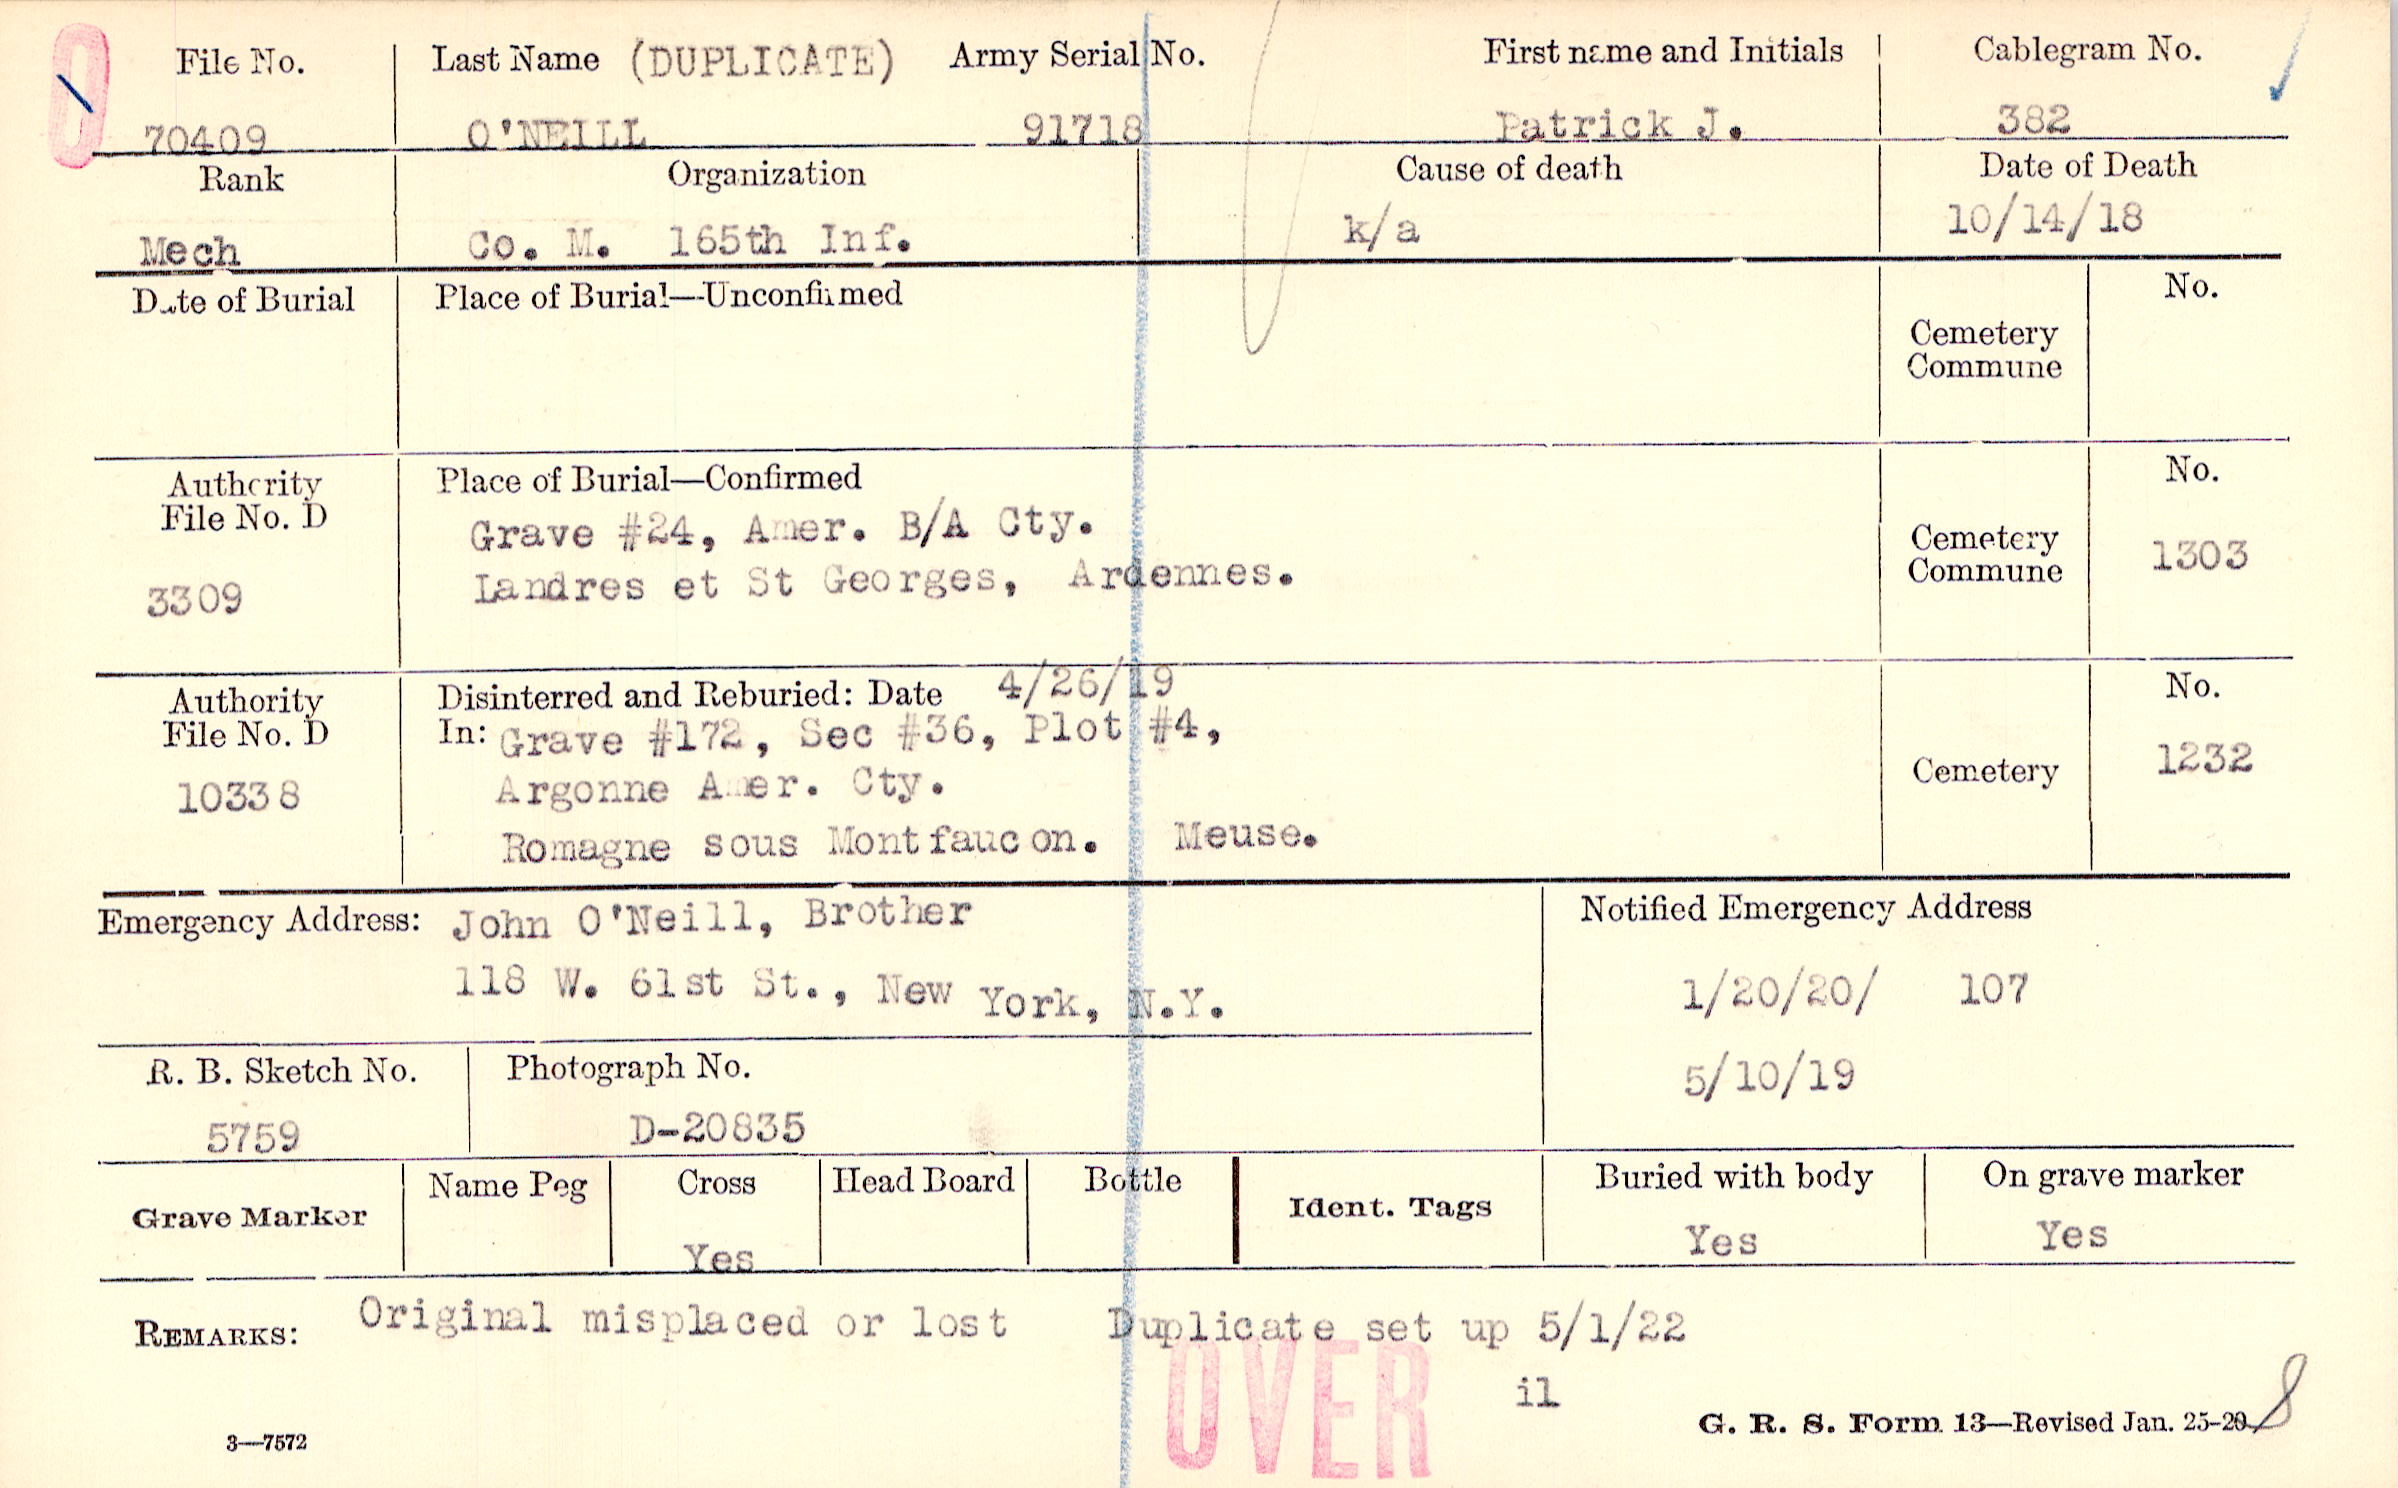 0
File No.
Last Name (DUPLICATE)
Army Serial No.
First name and Initials
Cablegram No.
70409
O'NEILL
91718
Patrick J.
382
Rank
Organization
Cause of death
Date of Death
Mech
Co. M. 165th Inf.
k/a
10/14/18
Date of Burial
Place of Burial—Unconfirmed
Cemetery
Commune
No.
Authority
File No. D
3309
Place of Burial—Confirmed
Grave #24, Amer. B/A Cty.
Landres et St Georges, Ardennes.
Cemetery
Commune
No.
1303
Authority
File No. D
10338
Disinterred and Reburied: Date 4/26/19
In: Grave #172, Sec #36, Plot #4,
Argonne Amer. Cty.
Romagne sous Montfaucon. Meuse.
Cemetery
No.
1232
Emergency Address: John O'Neill, Brother
118 W. 61st St., New York, N.Y.
Notified Emergency Address
1/20/20/ 107
5/10/19
R. B. Sketch No.
5759
Photograph No.
D-20835
Grave Marker
Name Peg
Cross
Yes
Head Board
Bottle
Ident. Tags
Buried with body
Yes
On grave marker
Yes
REMARKS: Original misplaced or lost Duplicate set up 5/1/22
OVER
il
3—7572
G. R. S. Form 13—Revised Jan. 25-20
8